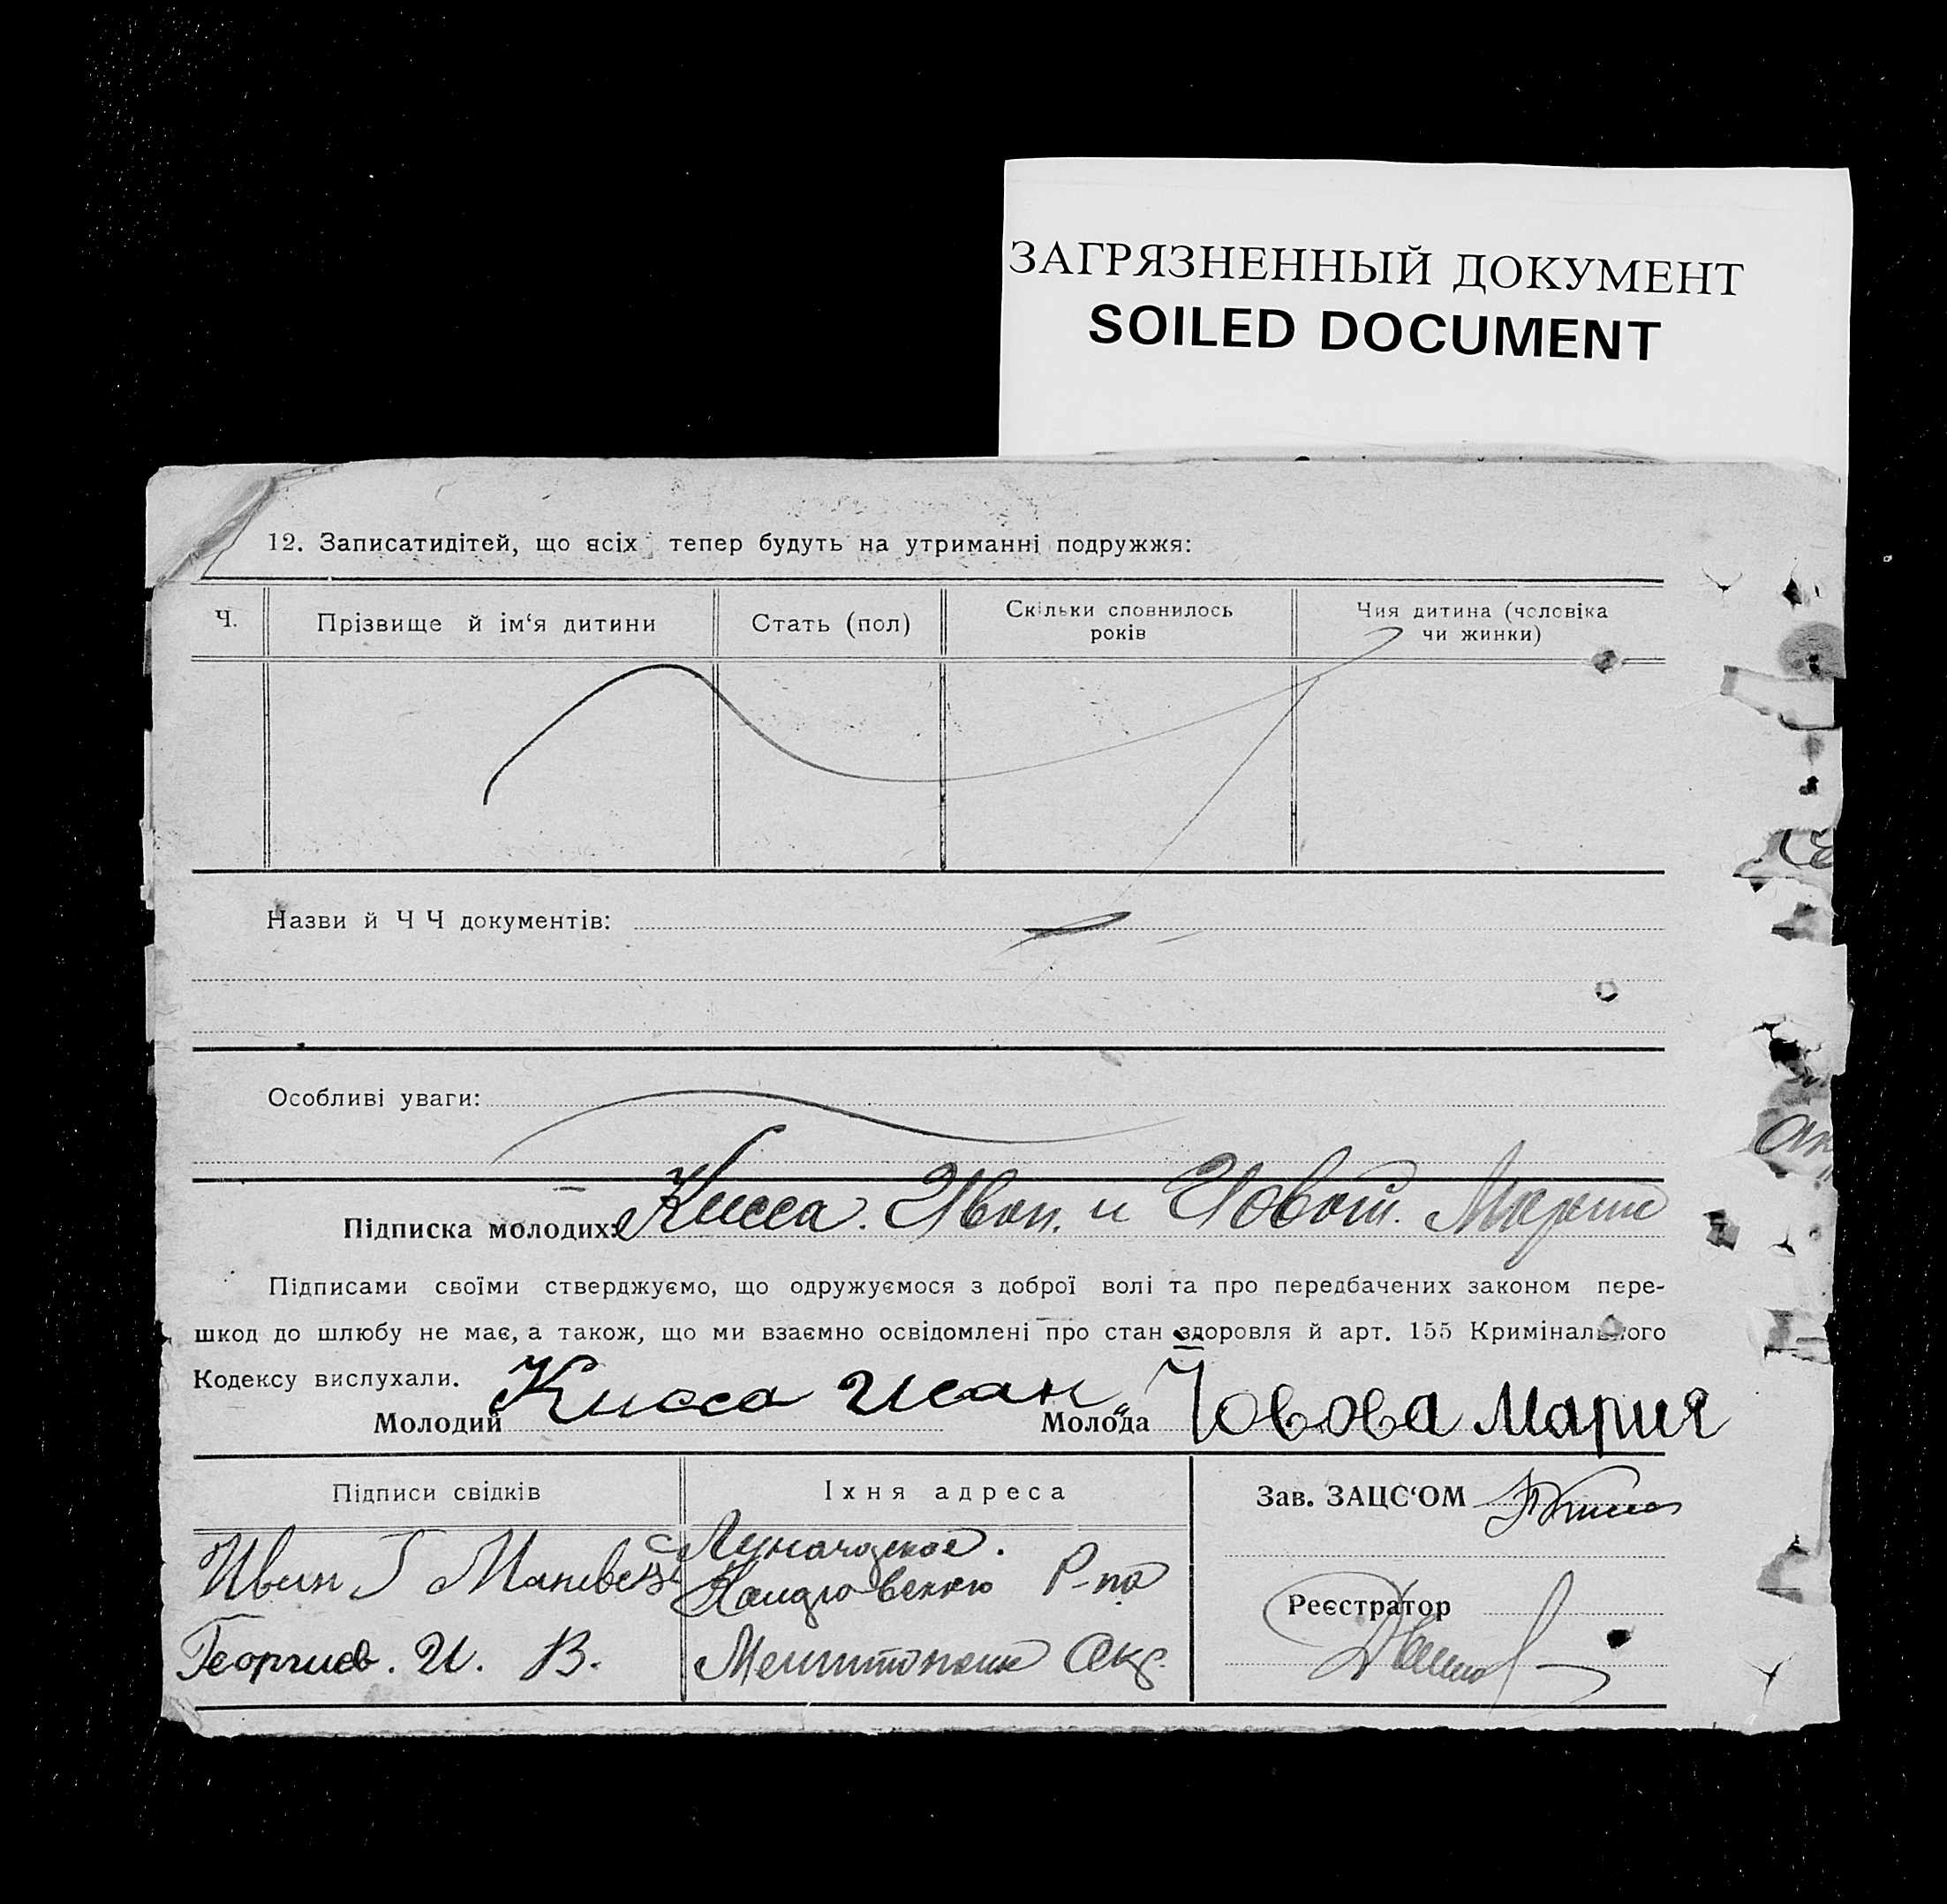 ЗАГРЯЗНЕННЫЙ ДОКУМЕНТ
SOILED DOCUMENT
12. Записатидітей, що всіх тепер будуть на утриманні подружжя:
Ч. Прізвище й ім‘я дитини Стать (пол) Скільки сповнилось років Чия дитина (человіка чи жинки)
Назви й Ч Ч документів:
Особливі уваги:
Підписка молодих: Кисса. Иван. и Йовой. Марии
Підписами своїми стверджуємо, що одружуємося з доброї волі та про передбачених законом пере-
шкод до шлюбу не має, а також, що ми взаємно освідомлені про стан здоровля й арт. 155 Кримінального
Кодексу вислухали.
Молодий Кисса Иван Молода Йовова Мария
Підписи свідків Їхня адреса Зав. ЗАЦС‘ОМ
Иван
Р-на
Реєстратор
Георгиев. И. В. Окр.